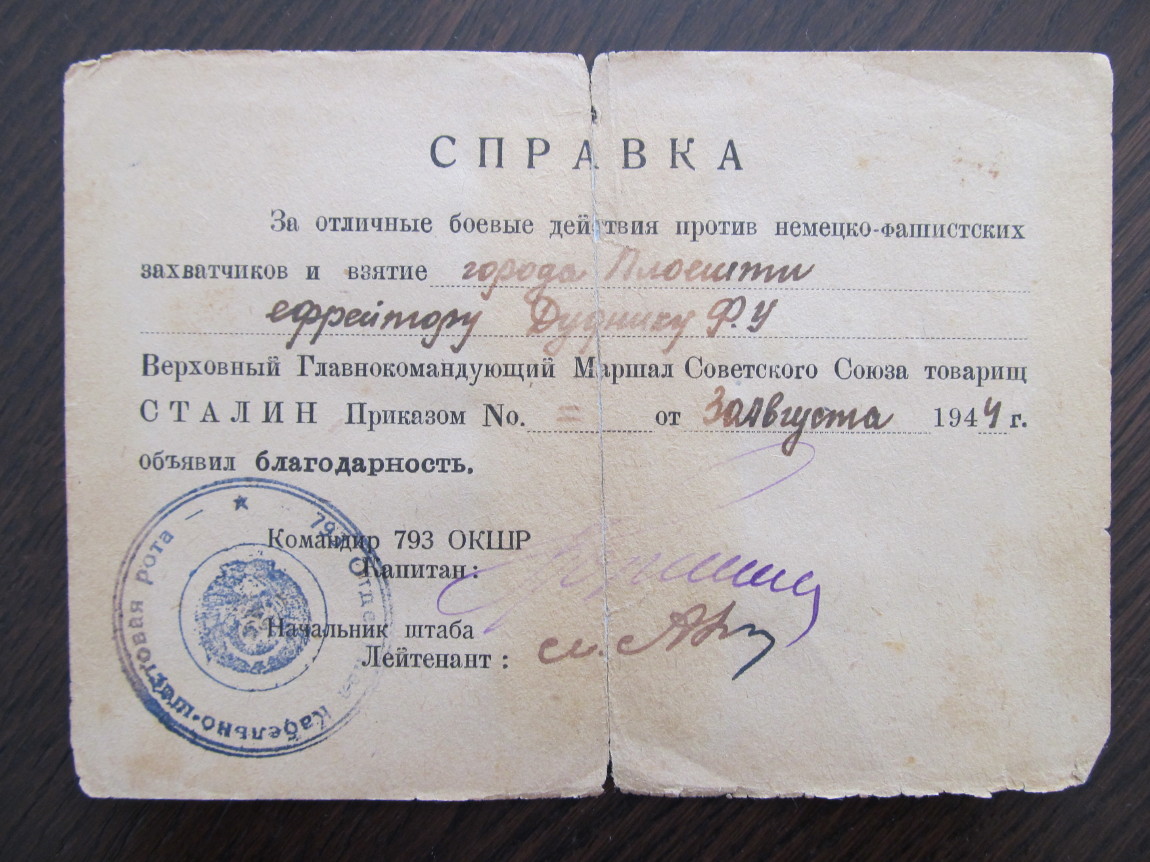 СПРАВКА
За отличные боевые действия против немецко-фашистских
захватчиков и взятие города Плоешти
ефрейтору Дуднику Ф.У
Верховный Главнокомандующий Маршал Советского Союза товарищ
СТАЛИН Приказом No. = от 30 Августа 1944 г.
объявил благодарность.
Командир 793 ОКШР
Капитан:
Начальник штаба
Лейтенант: мл.
793 Отдельная Кабельно-шестовая рота —